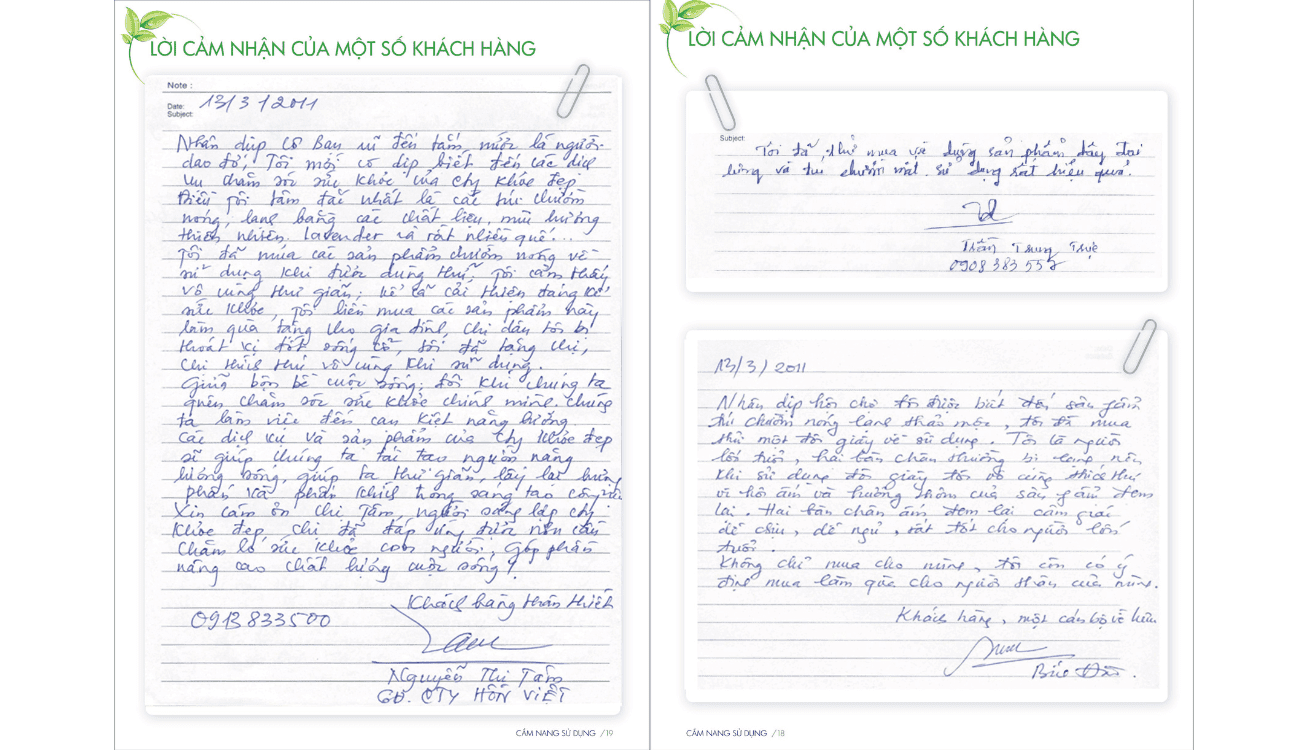 LỜI CẢM NHẬN CỦA MỘT SỐ KHÁCH HÀNG
Note :
Date: 13/3/2011
Subject:
Nhân dịp cô bạn đến tắm, mức là người
dao đỏ, Tôi mới có dịp biết đến các dịch
vụ chăm sóc sức khỏe của Cty Khỏe Đẹp
Điều tôi tâm đắc nhất là các túi chườm
nóng, lạnh bằng các chất liệu, mùi hương
thiên nhiên. lavender và rất nhiều quế...
Tôi đã mua các sản phẩm chườm nóng về
sử dụng khi được dùng thử, Tôi cảm thấy
vô cùng thư giãn, kể cả cải thiện đáng kể
sức khỏe, Tôi liền mua các sản phẩm này
làm quà tặng cho gia đình, chị dâu tôi bị
thoát vị đốt sống cổ, tôi đã tặng chị,
chị thích thú vô cùng khi sử dụng.
Giữa bộn bề cuộc sống, đôi khi chúng ta
quên chăm sóc sức khỏe chính mình. chúng
ta làm việc đến cạn kiệt năng lượng.
Các dịch vụ và sản phẩm của Cty Khỏe đẹp
sẽ giúp chúng ta tái tạo nguồn năng
lượng sống, giúp ta thư giãn, lấy lại hưng
phấn và phấn khích trong sáng tạo công việc
Xin cám ơn chị Tâm, người sáng lập cty
Khỏe đẹp, chị đã đáp ứng được nhu cầu
chăm lo sức khỏe con người, góp phần
nâng cao chất lượng cuộc sống!
Khách hàng thân thiết
0913 833500
Nguyễn Thị Tám
GĐ. CTY HỒN VIỆT
CẨM NANG SỬ DỤNG /19
LỜI CẢM NHẬN CỦA MỘT SỐ KHÁCH HÀNG
Subject:
Tôi đã thử mua và dùng sản phẩm dây đai
lưng và túi chườm mắt. sử dụng rất hiệu quả.
Trần Trung Trực
0908 383 552
13/3/2011
Nhân dịp hội chợ tôi được biết đến sản phẩm
túi chườm nóng lạnh thảo mộc, tôi đã mua
thử một đôi giày về sử dụng. Tôi là người
lớn tuổi, hai bàn chân thường bị lạnh nên
khi sử dụng đôi giày tôi vô cùng thích thú
vì hơi ấm và hương thơm của sản phẩm đem
lại. Hai bàn chân ấm đem lại cảm giác
dễ chịu, dễ ngủ, rất tốt cho người lớn
tuổi.
Không chỉ mua cho mình, tôi còn có ý
định mua làm quà cho người thân của mình.
Khách hàng, một cán bộ về hưu
CẨM NANG SỬ DỤNG /18